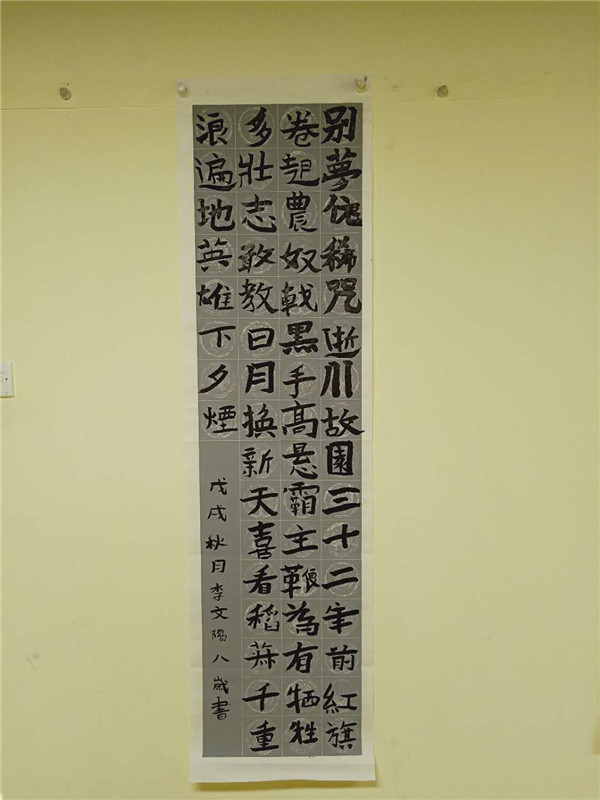 别夢依稀咒逝川故園三十二年前紅旗
卷起農奴戟黑手高悬霸主鞭為有牺牲
多壯志敢教日月换新天喜看稻菽千重
浪遍地英雄下夕煙
戊戌秋月李文陽八歲書